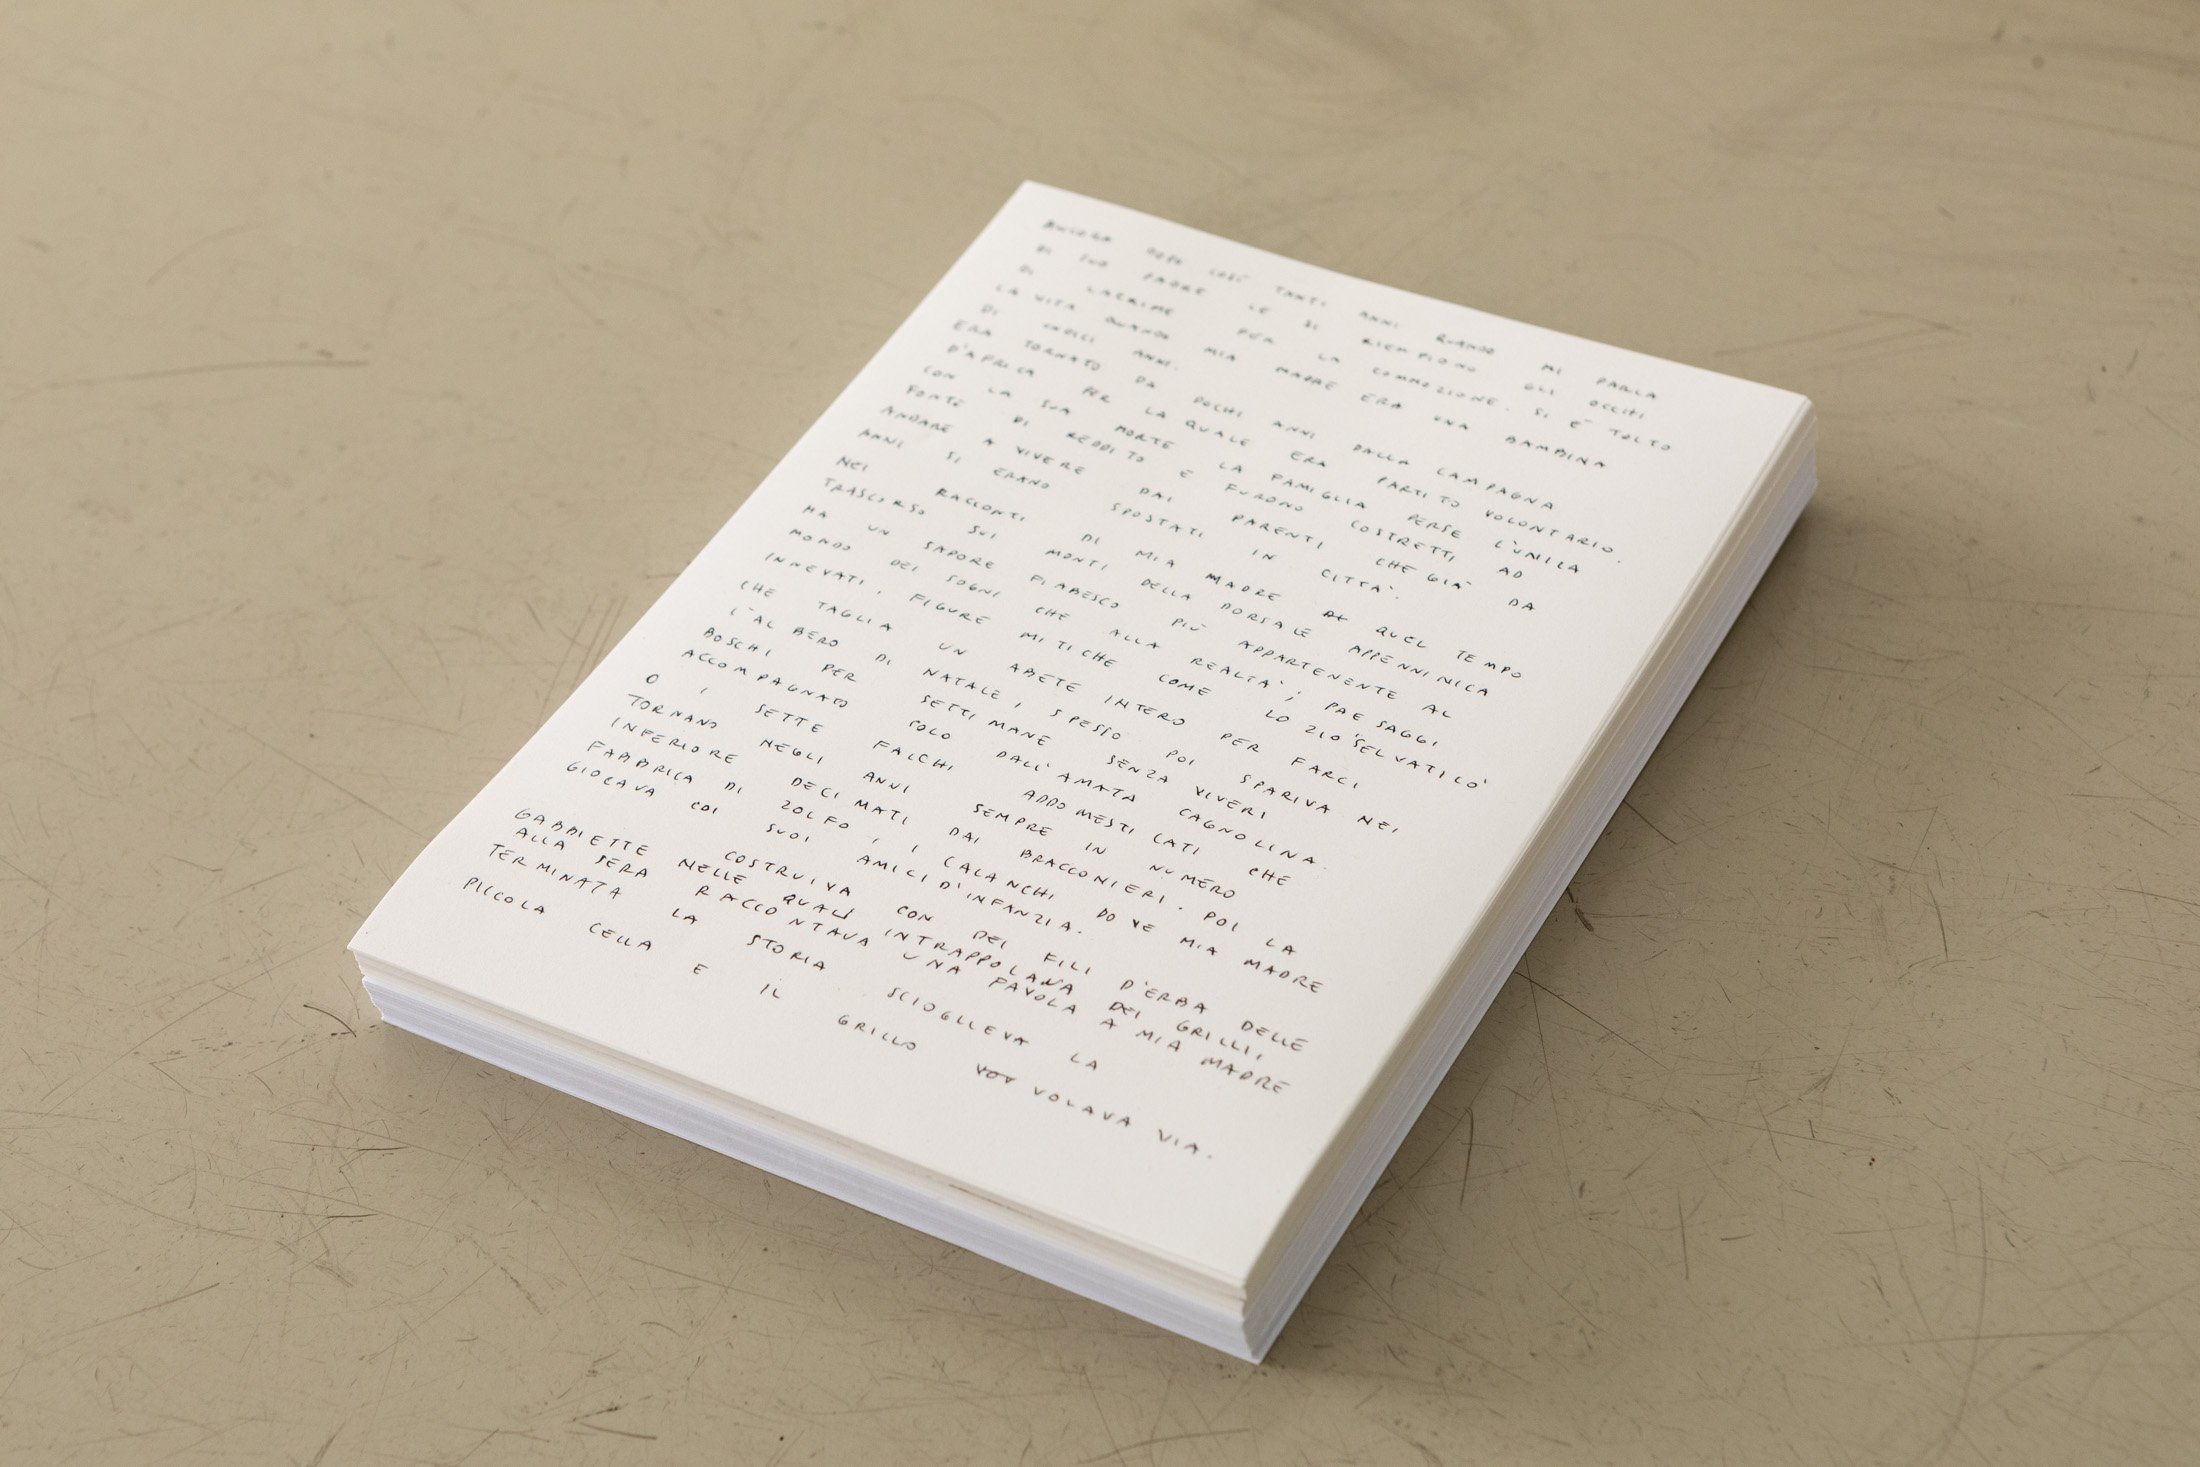 ANCORA DOPO COSÌ TANTI ANNI QUANDO MI PARLA
DI SUO PADRE LE SI RIEMPIONO GLI OCCHI
DI LACRIME PER LA COMMOZIONE. SI È TOLTO
LA VITA QUANDO MIA MADRE ERA UNA BAMBINA
DI UNDICI ANNI.
ERA TORNATO DA POCHI ANNI DALLA CAMPAGNA
D'AFRICA PER LA QUALE ERA PARTITO VOLONTARIO.
CON LA SUA MORTE LA FAMIGLIA PERSE L'UNICA
FONTE DI REDDITO E FURONO COSTRETTI AD
ANDARE A VIVERE DAI PARENTI CHE GIÀ DA
ANNI SI ERANO SPOSTATI IN CITTÀ.
NEI RACCONTI DI MIA MADRE QUEL TEMPO
TRASCORSO SUI MONTI DELLA DORSALE APPENNINICA
HA UN SAPORE FIABESCO PIÙ APPARTENENTE AL
MONDO DEI SOGNI CHE ALLA REALTÀ; PAESAGGI
INNEVATI, FIGURE MITICHE COME LO ZIO "SELVATICO"
CHE TAGLIA UN ABETE INTERO PER FARCI
L'ALBERO DI NATALE, SPESSO POI SPARIVA NEI
BOSCHI PER SETTIMANE SENZA VIVERI
ACCOMPAGNATO SOLO DALL'AMATA CAGNOLINA.
O I SETTE FALCHI ADDOMESTICATI CHE
TORNANO NEGLI ANNI SEMPRE IN NUMERO
INFERIORE DECIMATI DAI BRACCONIERI. POI LA
FABBRICA DI ZOLFO, I CALANCHI DOVE MIA MADRE
GIOCAVA COI SUOI AMICI D'INFANZIA.
COSTRUIVA CON DEI FILI D'ERBA DELLE
GABBIETTE NELLE QUALI INTRAPPOLAVA DEI GRILLI,
ALLA SERA RACCONTAVA UNA FAVOLA A MIA MADRE
TERMINATA LA STORIA SCIOGLIEVA LA
PICCOLA CELLA E IL GRILLO VOLAVA VIA.